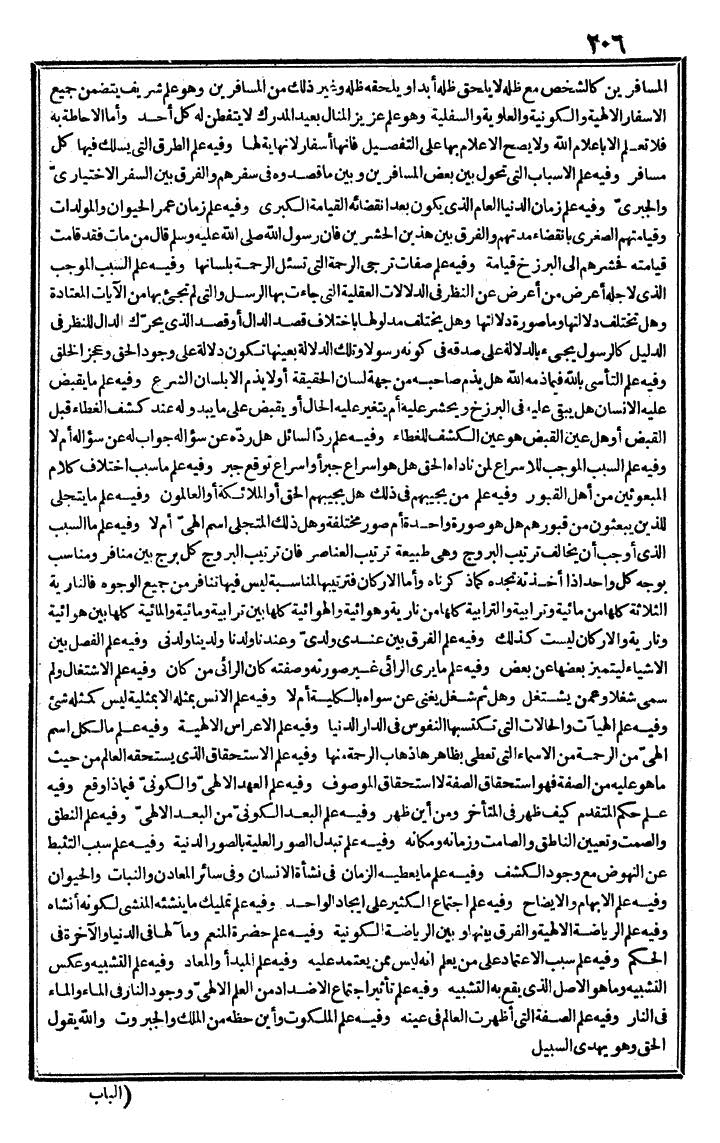 ٢٠٦
المسافرين كالشخص مع ظله لا يلحق ظله أبدا ويلحقه ظله وغير ذلك من المسافرين وهو علم شريف يتضمن جميع
الاسفار الالهية والكونية والعلوية والسفلية وهو علم عزيز المنال بعيد المدرك لا يتفطن له كل أحد وأما الاحاطة به
فلا تعلم الا باعلام الله ولا يصح الاعلام بها على التفصيل فانها أسفار لا نهاية لها وفيه علم الطرق التي يسلك فيها كل
مسافر وفيه علم الاسباب التي تحول بين بعض المسافرين وبين ما قصدوه في سفرهم والفرق بين السفر الاختياريّ
والجبريّ وفيه علم زمان الدنيا العام الذي يكون بعد انقضائه القيامة الكبرى وفيه علم زمان عمر الحيوان والمولدات
وقيامتهم الصغرى بانقضاء مدتهم والفرق بين هذين الحشرين فان رسول الله صلى الله عليه وسلم قال من مات فقد قامت
قيامته فحشرهم الى البرزخ قيامة وفيه علم صفات ترجى الرحمة التي تسئل الرحمة بلسانها وفيه علم السبب الموجب
الذي لاجله أعرض من أعرض عن النظر في الدلالات العقلية التي جاءت بها الرسل والتي لم تجئ بها من الآيات المعتادة
وهل تختلف دلالتها وما صورة دلالتها وهل يختلف مدلولها باختلاف قصد الدال أو قصد الذي يحرّك الدال للنظر في
الدليل كالرسول يجيء بالدلالة على صدقه في كونه رسولا وتلك الدلالة بعينها تكون دلالة على وجود الحق وعجز الخلق
وفيه علم التأسي بالله فيما ذمه الله هل يذم صاحبه من جهة لسان الحقيقة أو لا يذم الا بلسان الشرع وفيه علم ما يقبض
عليه الانسان هل يبقى عليه في البرزخ ويحشر عليه أم يتغير عليه الحال أو يقبض على ما يبدو له عند كشف الغطاء قبل
القبض أو هل عين القبض هو عين الكشف للغطاء وفيه علم ردّ السائل هل ردّه عن سؤاله جواب له عن سؤاله أم لا
وفيه علم السبب الموجب للاسراع لمن ناداه الحق هل هو اسراع جبر أو اسراع توقع جبر وفيه علم ما سبب اختلاف كلام
المبعوثين من أهل القبور وفيه علم من يجيبهم في ذلك هل يجيبهم الحق أو الملائكة أو العالمون وفيه علم ما يتجلى
للذين يبعثون من قبورهم هل هو صورة واحدة أم صور مختلفة وهل ذلك المتجلي اسم الهيّ أم لا وفيه علم ما السبب
الذي أوجب أن يخالف ترتيب البروج وهي طبيعة ترتيب العناصر فان ترتيب البروج كل برج بين منافر ومناسب
بوجه كل واحد اذا أخذته تجده كما ذكرناه وأما الاركان فترتيبها المناسبة ليس فيها تنافر من جميع الوجوه فالنارية
الثلاثة كلها من مائية وترابية والترابية كلها من نارية وهوائية والهوائية كلها بين ترابية ومائية والمائية كلها بين هوائية
ونارية والاركان ليست كذلك وفيه علم الفرق بين عندي ولديّ وعندنا ولدنا ولدينا ولدني وفيه علم الفصل بين
الاشياء ليتميز بعضها عن بعض وفيه علم ما يرى الرائي غير صورته وصفته كان الرائي من كان وفيه علم الاشتغال ولم
سمي شغلا وعمن يشتغل وهل ثم شغل يغني عن سواه بالكلية أم لا وفيه علم الانس بمثله الا بمثلية ليس كمثله شئ
وفيه علم الهيآت والحالات التي تكتسبها النفوس في الدار الدنيا وفيه علم الاعراس الالهية وفيه علم ما لكل اسم
الهيّ من الرحمة من الاسماء التي تعطى بظاهرها ذهاب الرحمة منها وفيه علم الاستحقاق الذي يستحقه العالم من حيث
ما هو عليه من الصفة فهو استحقاق الصفة لا استحقاق الموصوف وفيه علم العهد الالهيّ والكونيّ فيما ذا وقع وفيه
علم حكم المتقدم كيف ظهر في المتأخر ومن أين ظهر وفيه علم البعد الكونيّ من البعد الالهيّ وفيه علم النطق
والصمت وتعيين الناطق والصامت وزمانه ومكانه وفيه علم تبدل الصور العلية بالصور الدنية وفيه علم سبب التثبط
عن النهوض مع وجود الكشف وفيه علم ما يعطيه الزمان في نشأة الانسان وفي سائر المعادن والنبات والحيوان
وفيه علم الابهام والايضاح وفيه علم اجتماع الكثير على ايجاد الواحد وفيه علم تمليك ما ينشئه المنشى لكونه أنشاه
وفيه علم الرياضة الالهية والفرق بينها وبين الرياضة الكونية وفيه علم حضرة المنعم ومآلها في الدنيا والآخرة في
الحكم وفيه علم سبب الاعتماد على من يعلم انه ليس ممن يعتمد عليه وفيه علم المبدأ والمعاد وفيه علم التشبيه وعكس
التشبيه وما هو الاصل الذي يقع به التشبيه وفيه علم تأثير اجتماع الاضداد من العلم الالهيّ ووجود النار في الماء والماء
في النار وفيه علم الصفة التي أظهرت العالم في عينه وفيه علم الملكوت وأين حظه من الملك والجبروت والله يقول
الحق وهو يهدى السبيل
(الباب